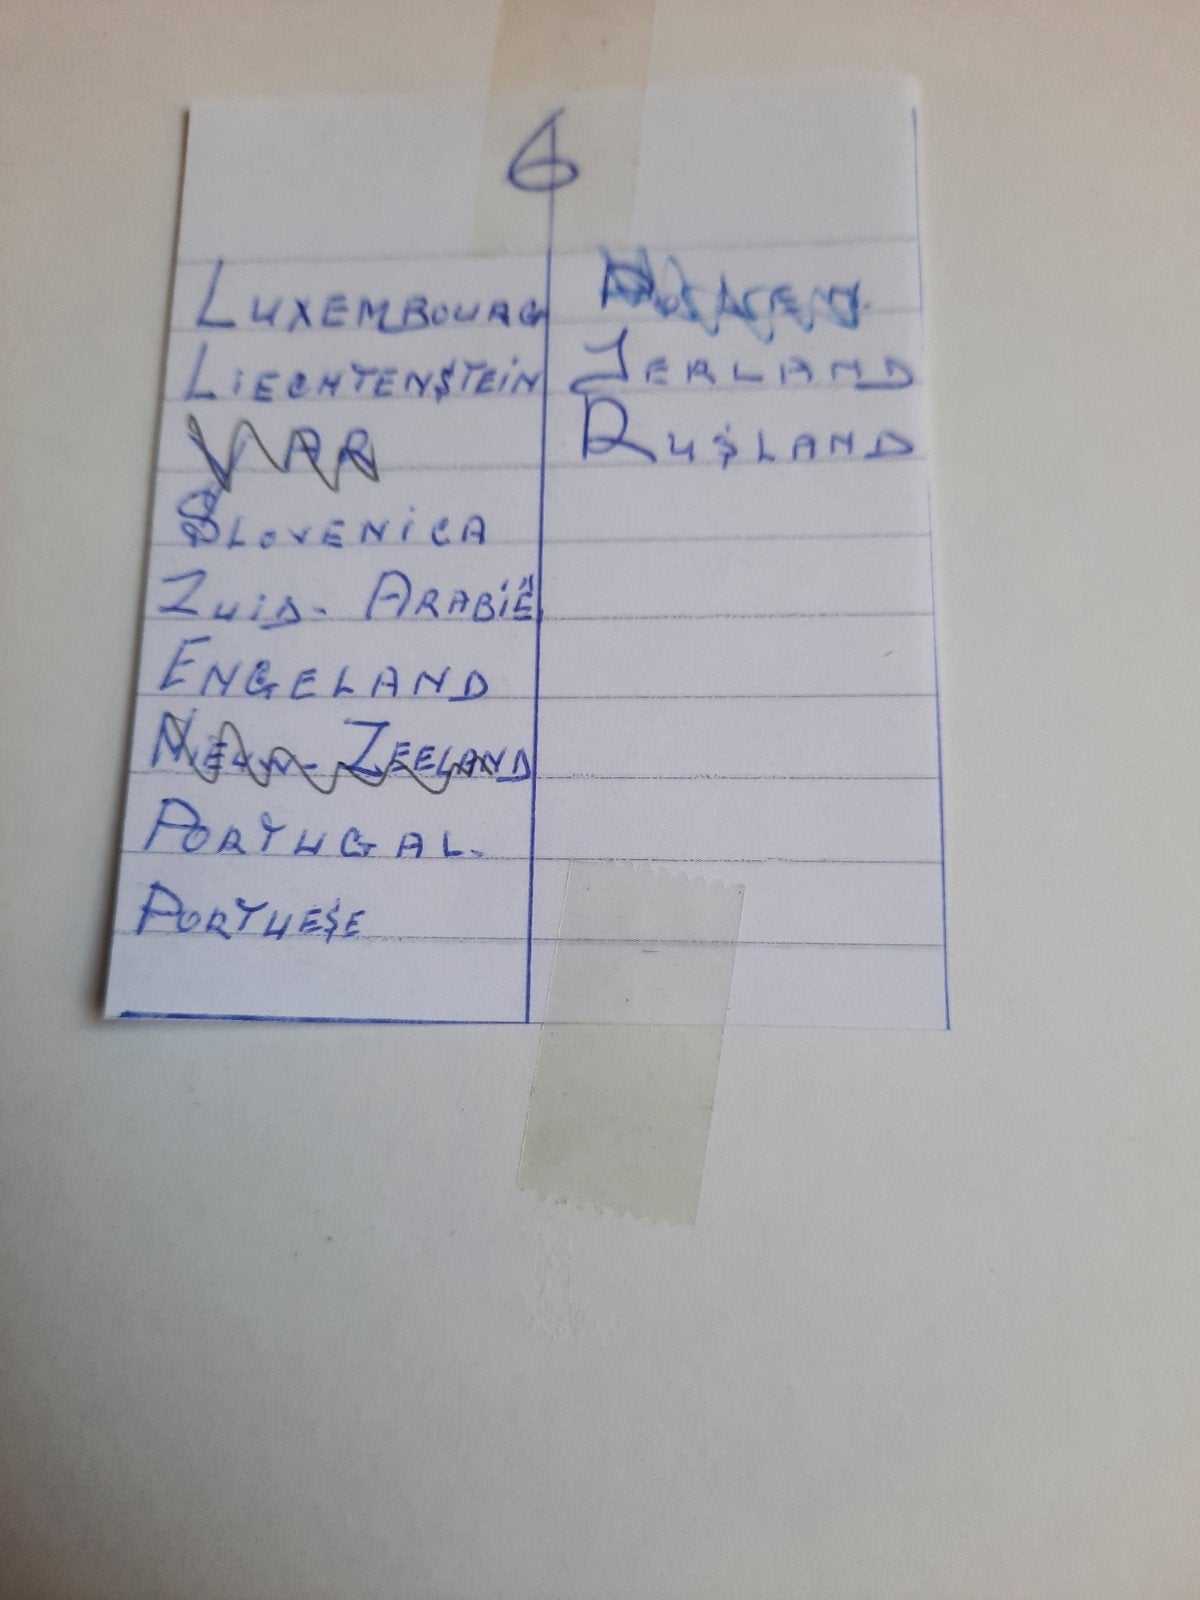 6
LUXEMBOURG
LIECHTENSTEIN
VAR
SLOVENICA
ZUID- ARABIË
ENGELAND
NEUW- ZEELAND
PORTUGAL.
PORTUESE
IERLAND
RUSLAND